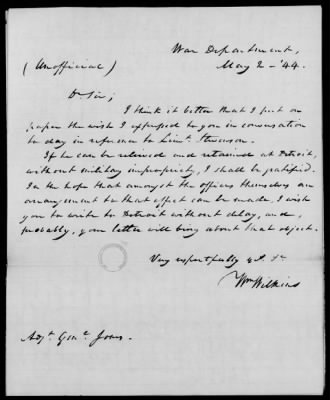 War Department,
(Unofficial) May 2 - '44.
Dr Sir;
I think it better that I put on
paper the wish I expressed to you in conversation
to day in reference to Lieut.
If he can be relieved and retained at Detroit,
without military impropriety, I shall be gratified.
In the hope that amongst the officers themselves an
arrangement to that effect can be made, I wish
you to write to Detroit without delay, and,
probably, your letter will bring about that object.
Very respectfully
Wm Wilkins
Adjt. Genl. Jones.